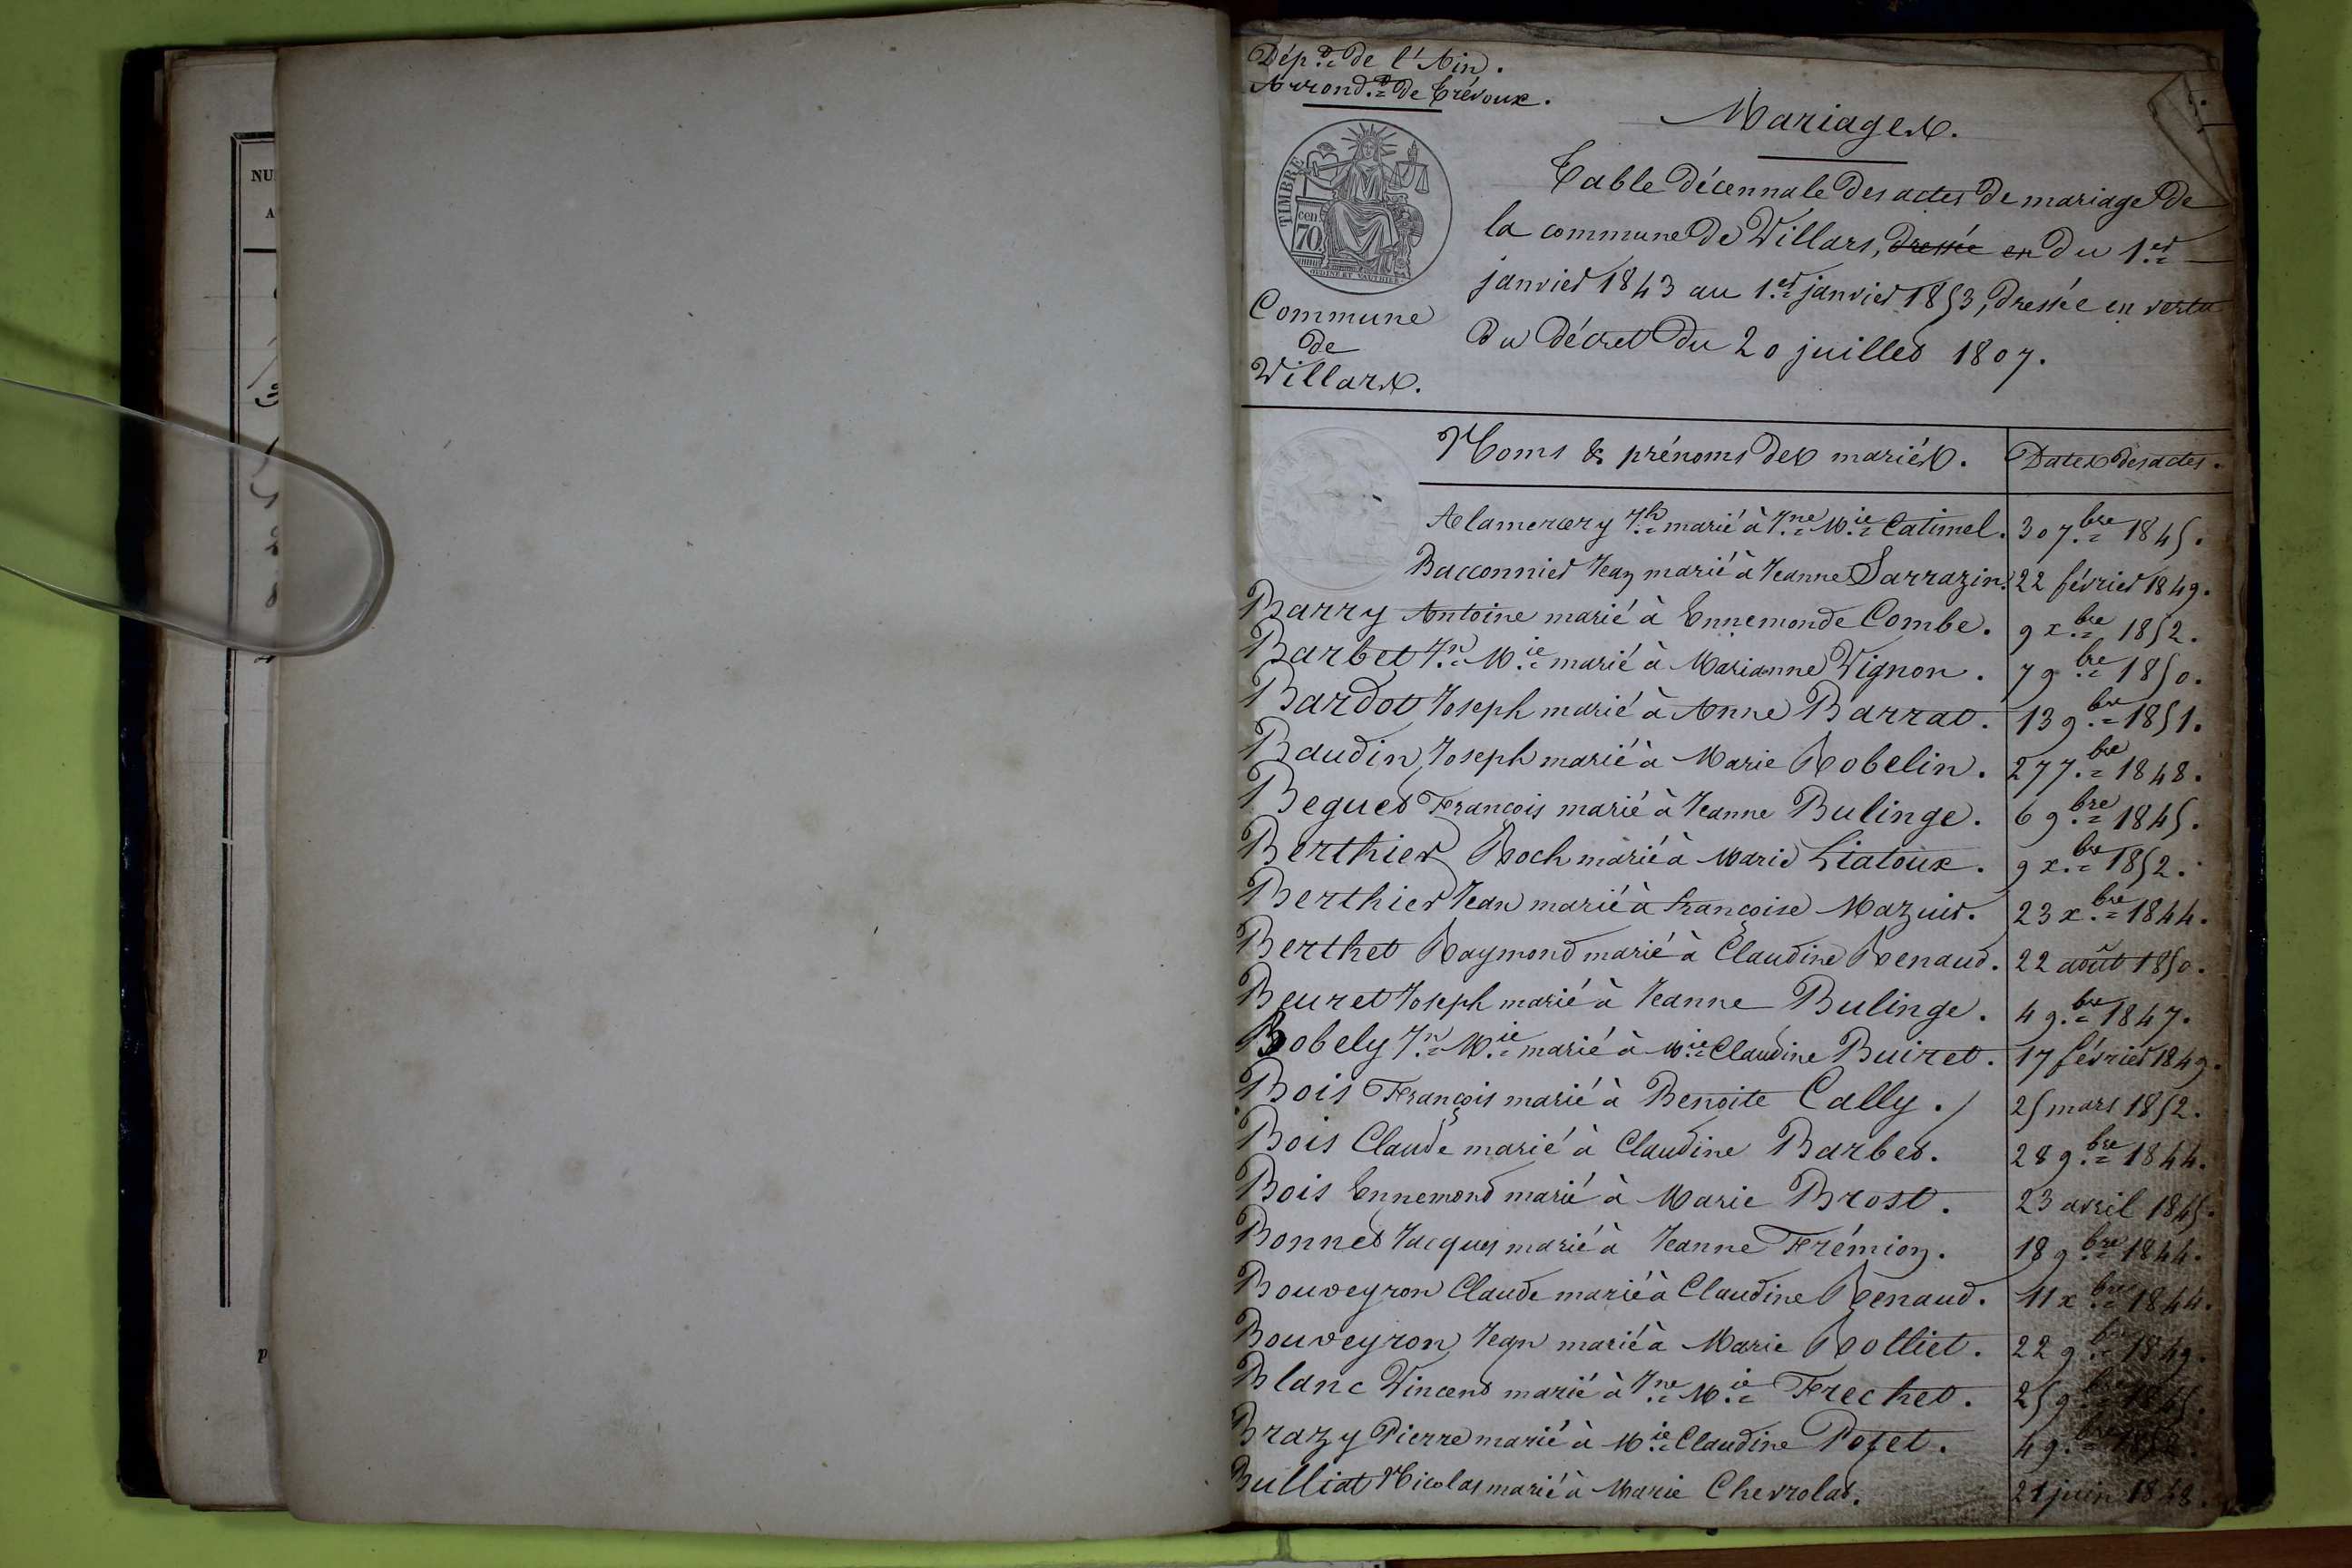 NU
A
Dép.t de l'Ain.
Arrond.t de Trévoux.
Mariages.
TIMBRE
cen
70.
Table décennale des actes de mariage de
la commune de Villars, dressée en du 1.er
janvier 1843 au 1.er janvier 1853, dressée en vertu
du décret du 20 juillet 1807.
Commune
de
Villars.
Noms & prénoms des mariés. Dates des actes.
Alamercery J.h marié à J.ne M.ie Catimel. 30 7.bre 1845.
Bacconnier Jean marié à Jeanne Sarrazin. 22 février 1849.
Barry Antoine marié à Ennemonde Combe. 9 x.bre 1852.
Barbet J.n M.ie marié à Marianne Vignon. 7 9.bre 1850.
Bardot Joseph marié à Anne Barrat. 13 9.bre 1851.
Baudin Joseph marié à Marie Robelin. 27 7.bre 1848.
Beguet Francois marié à Jeanne Bulinge. 6 9.bre 1845.
Berthier Roch marié à Marie Liatoux. 9 x.bre 1852.
Berthier Jean marié à françoise Mazuir. 23 x.bre 1844.
Berthet Raymond marié à Claudine Renaud. 22 août 1850.
Beuret Joseph marié à Jeanne Bulinge. 4 9.bre 1847.
Bobely J.n M.ie marié à M.ie Claudine Buiret. 17 février 1849.
Bois François marié à Benoite Cally. 25 mars 1852.
Bois Claude marié à Claudine Barbet. 28 9.bre 1844.
Bois Ennemond marié à Marie Brost. 23 avril 1845.
Bonnet Jacques marié à Jeanne Frémion. 18 9.bre 1844.
Bouveyron Claude marié à Claudine Renaud. 11 x.bre 1844.
Bouveyron Jean marié à Marie Rolliet. 22 9.bre 1849.
Blanc Vincent marié à J.ne M.ie Frechet. 25 9.bre 1845.
Brazy Pierre marié à M.ie Claudine Poset. 4 9.bre
Bulliat Nicolas marié à Marie Chevrolat. 21 juin 1848.